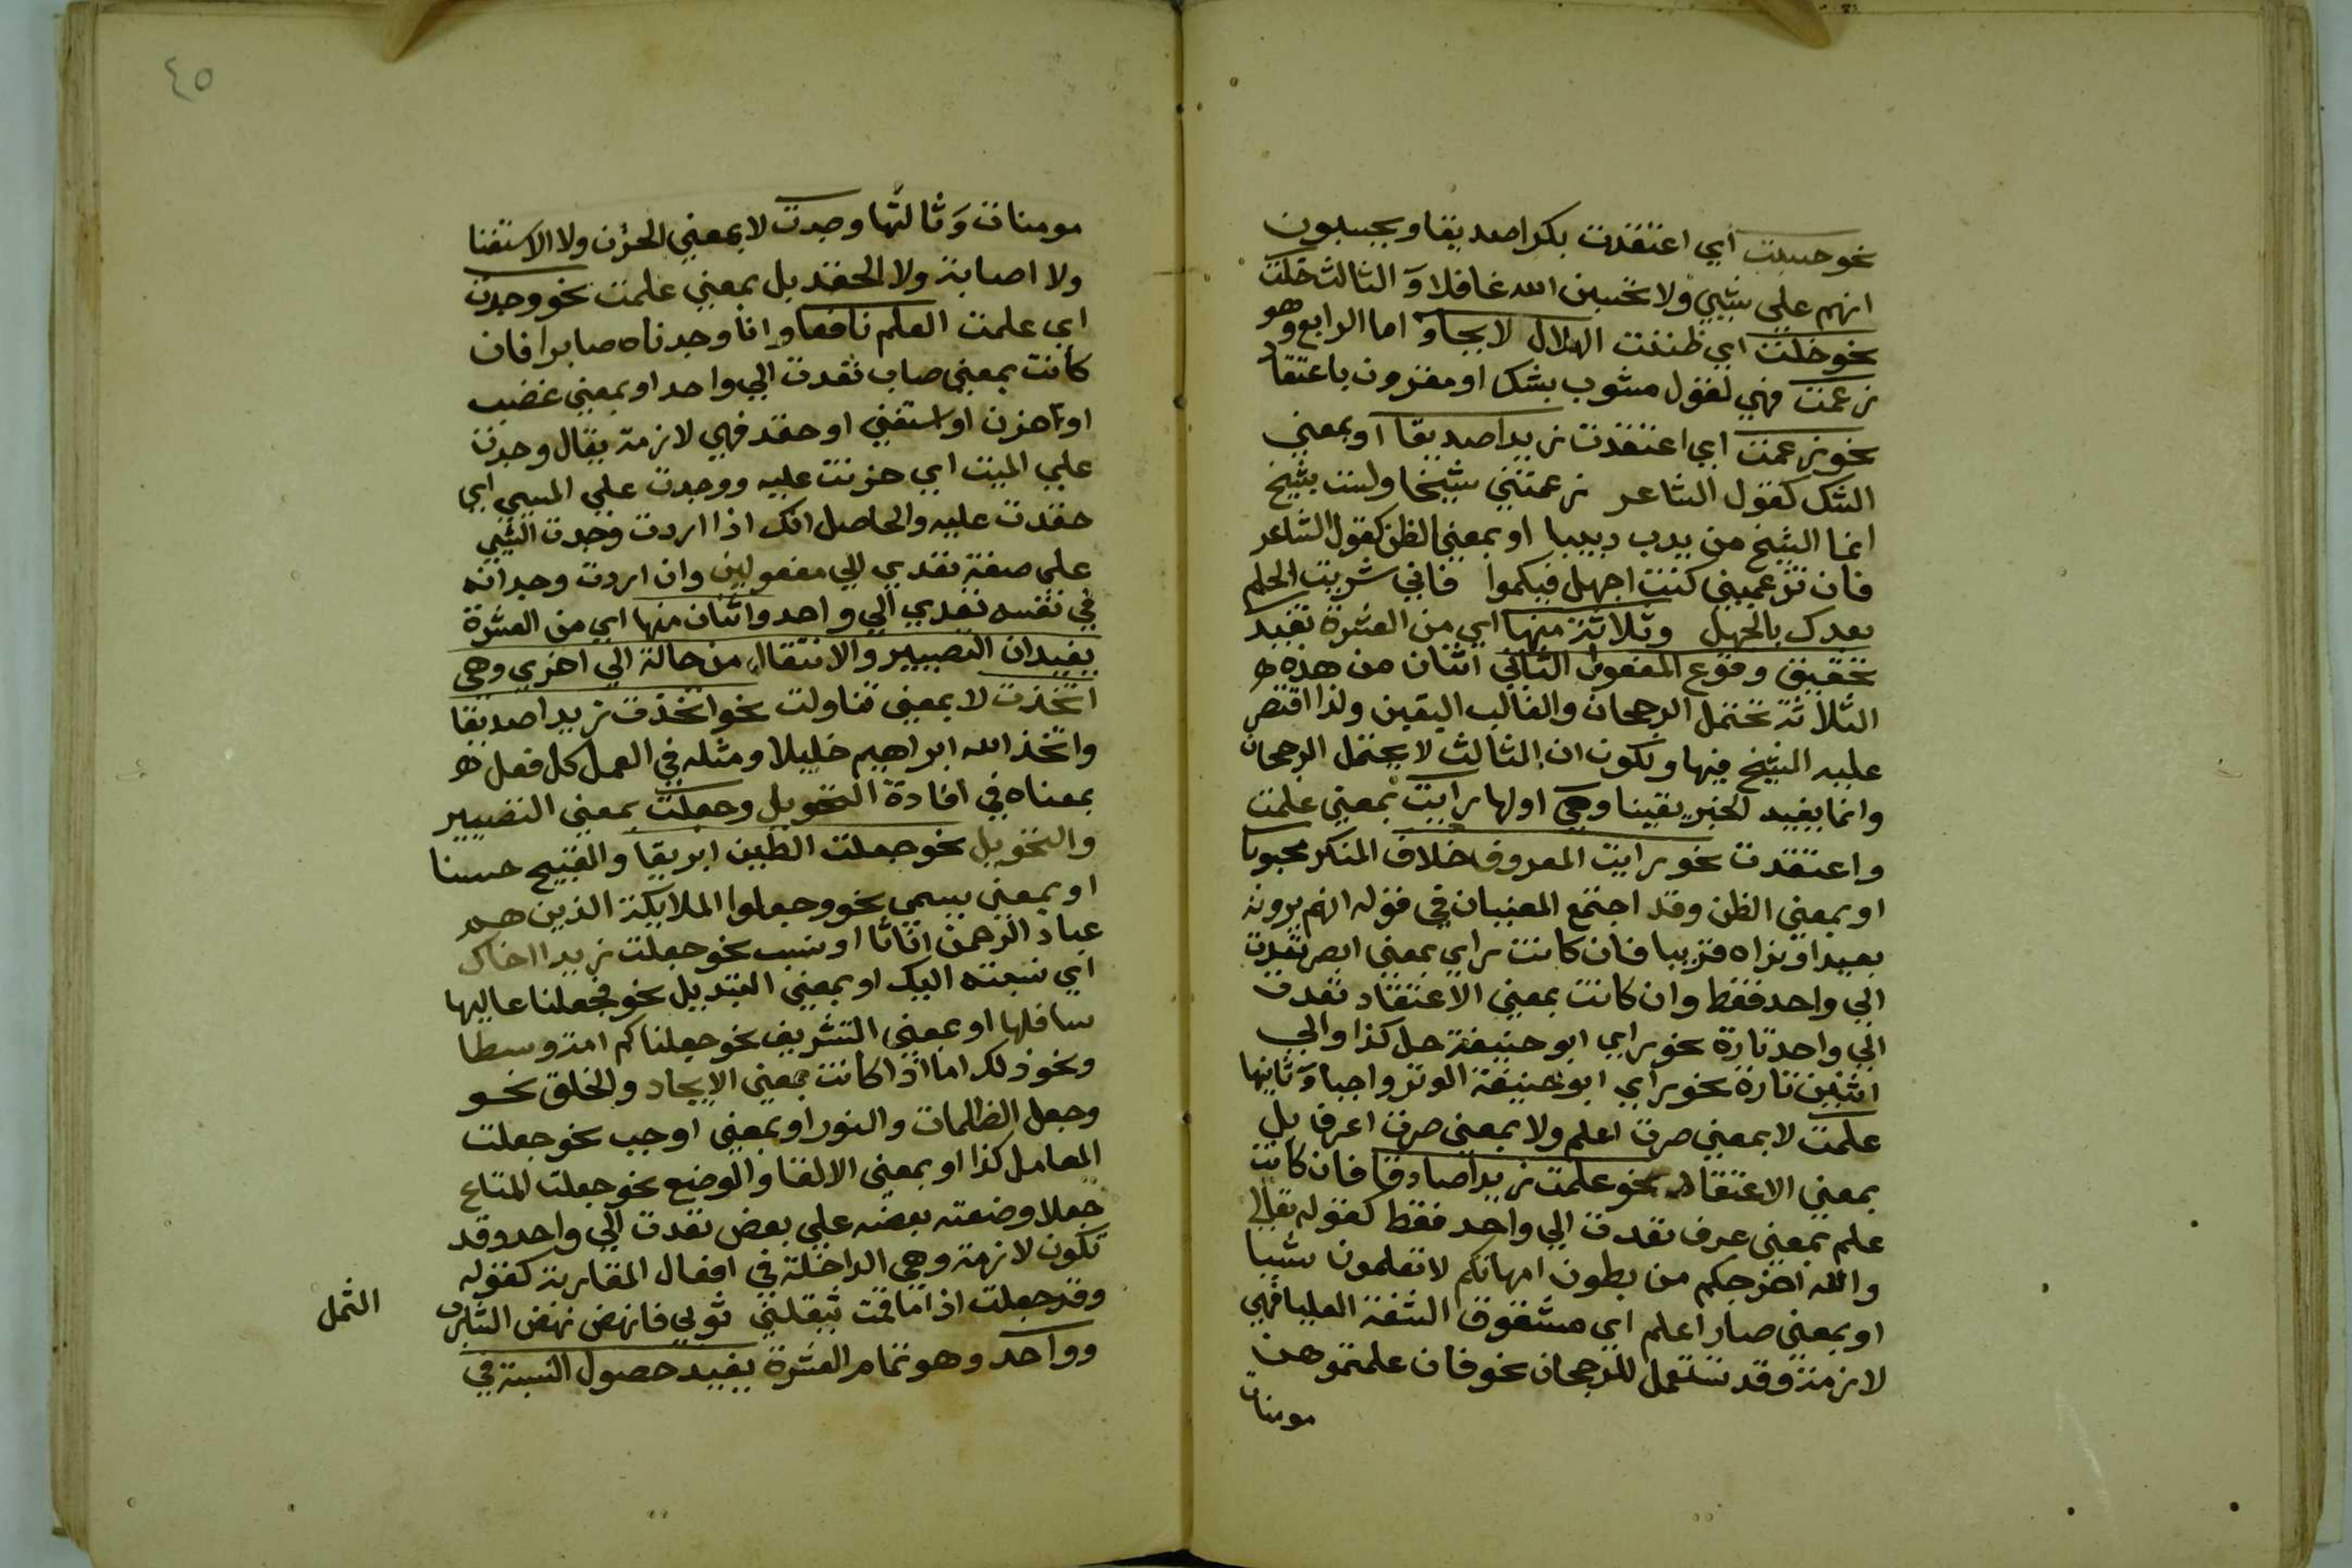 نحو حسبت اي اعتقدت بكرا صديقا ويحسبون
انهم علي شيي ولا تحسبن الله غافلا و الثالث خلت
نحو خلت اي ظننت الهلال لايحا و اما الرابع وهو
زعمت فهي لقول مشوب بشك او مقرون باعتقاد
نحو زعمت اي اعتقدت زيدا صديقا او بمعني
الشك كقول الشاعر زعمتني شيخا ولست بشيخ
انما الشيخ من يدب دبيبا او بمعني الظن كقول الشاعر
فان تزعميني كنت اجهل فيكموا فاني شريت الحلم
بعدك بالجهل وثلاثة منها اي من العشرة تفيد
تحقيق وقوع المفعول الثاني اثنان من هذه
الثلاثة تحتمل الرجحان والغالب اليقين ولذا اقتصر
عليه الشيخ فيها ويكون ان الثالث لا يحتمل الرجحان
وانما يفيد لخبر يقينا وهي اولها رايت بمعني علمت
واعتقدت نحو رايت المعروف خلاف المنكر محبوبا
او بمعني الظن وقد اجتمع المعنيان في قوله انهم يرونه
بعيدا ونراه قريبا فان كانت راي بمعني ابصر تعدت
الي واحد فقط وان كانت بمعني الاعتقاد تعدت
الي واحد تارة نحو راي ابو حنيفة حل كذا والي
اثنين تارة نحو راي ابو حنيفة الوتر واجبا و ثانيها
علمت لا بمعني صرت اعلم ولا بمعني صرت اعرف بل
بمعني الاعتقاد نحو علمت زيدا صادقا فان كانت
علم بمعني عرف تعدت الي واحد فقط كقوله تعالي
والله اخرجكم من بطون امهاتكم لا تعلمون شييا
او بمعني صار اعلم اي مشقوق الشفة العليا فهي
لازمة وقد تستعمل للرجحان نحو فان علمتموهن
مومنات
٤٥
مومنات و ثالثها وجدت لا بمعني الحزن ولا الاستغنا
ولا اصابة ولا الحقد بل بمعني علمت نحو وجدت
اي علمت العلم نافعا و انا وجدناه صابرا فان
كانت بمعني صاب تعدت الي واحد او بمعني غضب
او حزن او استغني او حقد فهي لازمة يقال وجدت
علي الميت اي حزنت عليه ووجدت علي المسي اي
حقدت عليه والحاصل انك اذا اردت وجدت الشي
علي صفة تعدي الي مفعولين وان اردت وجدانه
في نفسه تعدي الي واحد واثنان منها اي من العشرة
يفيدان التصيير والانتقال من حالة الي اخري وهي
اتخذت لا بمعني تناولت نحو اتخذت زيدا صديقا
واتخذ الله ابراهيم خليلا ومثله في العمل كل فعل
بمعناه في افادة التحويل وجعلت بمعني التصيير
والتحويل نحو جعلت الطين ابريقا والقبيح حسنا
او بمعني يسمي نحو وجعلوا الملايكة الذين هم
عباد الرحمن اناثا او نسب نحو جعلت زيدا اخاك
اي نسبته اليك او بمعني التبديل نحو فجعلنا عاليها
سافلها او بمعني التشريف نحو جعلناكم امة وسطا
ونحو ذلك اما اذا كانت بمعني الايجاد والخلق نحو
وجعل الظلمات والنور او بمعني اوجب نحو جعلت
المعامل كذا او بمعني الالقا والوضع نحو جعلت المتاع
جعلا وضعته بعضه علي بعض تعدت الي واحد وقد
تكون لازمة وهي الداخلة في افعال المقاربة كقوله
وقد جعلت اذا ما قمت يثقلني ثوبي فانهض نهض الشارب
الثمل
و واحد وهو تمام العشرة يفيد حصول النسبة في